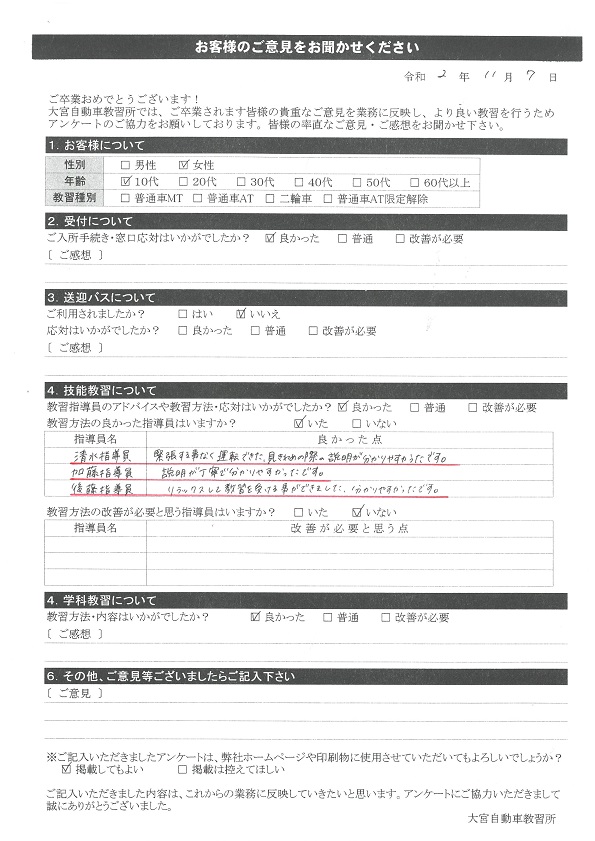 お客様のご意見をお聞かせください
令和 2 年 11 月 7 日
ご卒業おめでとうございます！
大宮自動車教習所では、ご卒業されます皆様の貴重なご意見を業務に反映し、より良い教習を行うため
アンケートのご協力をお願いしております。皆様の率直なご意見・ご感想をお聞かせ下さい。
1. お客様について
性別 □ 男性 ☑ 女性
年齢 ☑ 10代 □ 20代 □ 30代 □ 40代 □ 50代 □ 60代以上
教習種別 □ 普通車MT □ 普通車AT □ 二輪車 □ 普通車AT限定解除
2. 受付について
ご入所手続き・窓口応対はいかがでしたか？ ☑ 良かった □ 普通 □ 改善が必要
〔 ご感想 〕
3. 送迎バスについて
ご利用されましたか？ □ はい ☑ いいえ
応対はいかがでしたか？ □ 良かった □ 普通 □ 改善が必要
〔 ご感想 〕
4. 技能教習について
教習指導員のアドバイスや教習方法・応対はいかがでしたか？ ☑ 良かった □ 普通 □ 改善が必要
教習方法の良かった指導員はいますか？ ☑ いた □ いない
指導員名 良かった点
清水指導員 緊張する事なく運転できた、見きわめの際の説明が分かりやすかったです。
加藤指導員 説明が丁寧で分かりやすかったです。
後藤指導員 リラックスして教習を受ける事ができました、分かりやすかったです。
教習方法の改善が必要と思う指導員はいますか？ □ いた ☑ いない
指導員名 改善が必要と思う点
4. 学科教習について
教習方法・内容はいかがでしたか？ ☑ 良かった □ 普通 □ 改善が必要
〔 ご感想 〕
6. その他、ご意見等ございましたらご記入下さい
〔 ご意見 〕
※ご記入いただきましたアンケートは、弊社ホームページや印刷物に使用させていただいてもよろしいでしょうか？
☑ 掲載してもよい □ 掲載は控えてほしい
ご記入いただきました内容は、これからの業務に反映していきたいと思います。アンケートにご協力いただきまして
誠にありがとうございました。
大宮自動車教習所